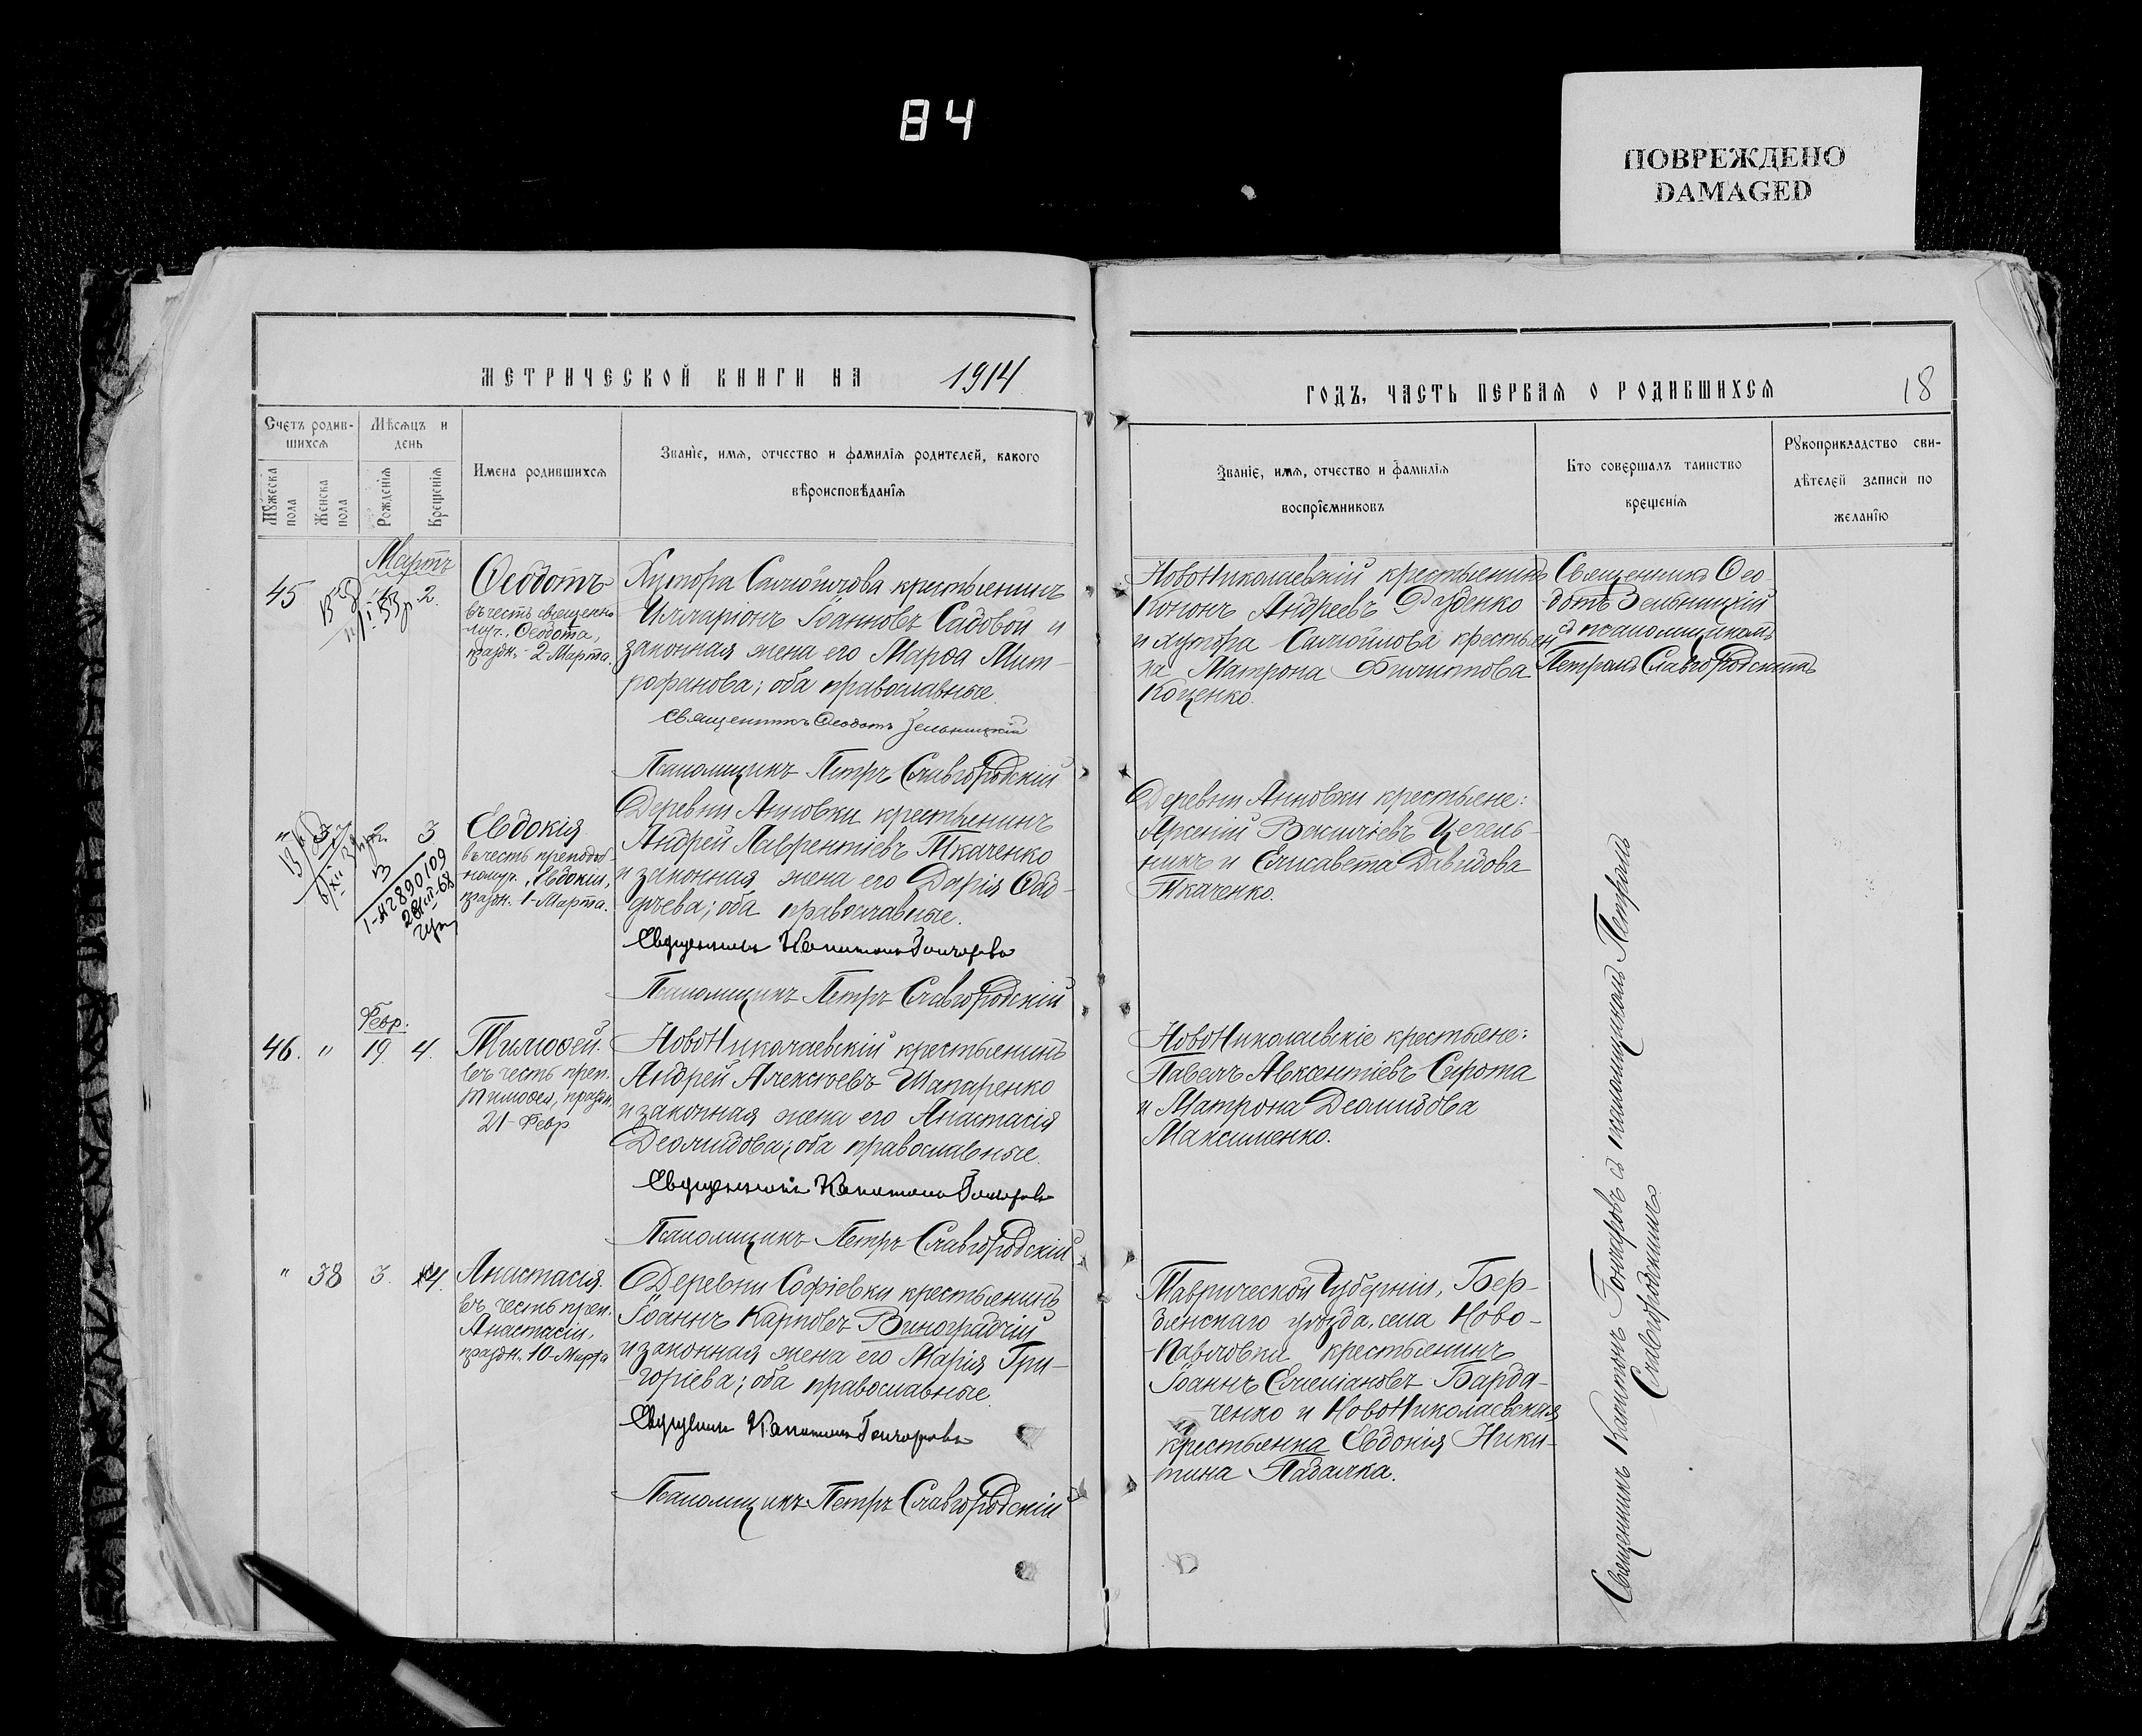 84
ПОВРЕЖДЕНО
DAMAGED
МЕТРИЧЕСКОЙ КНИГИ НА 1914
Счетъ родив-
шихся
Мѣсяцъ и
день
Мужеска
пола
Женска
пола
Рожденія
Крещенія
Имена родившихся
Званіе, имя, отчество и фамилія родителей, какого
вѣроисповѣданія
Мартъ
45
2.
Ѳеодотъ
въ честь священно
муч. Ѳеодота,
праздн. 2 Марта.
Хутора крестьянинъ
Илларіонъ Іоанновъ Садовой и
законная жена его Марѳа Мит-
рофанова; оба православные.
Священникъ Ѳеодотъ Зельницкій
Псаломщикъ Петръ Славгородскій
"
3
1-АГ2890109
Евдокія
въ честь преподоб-
номуч. Евдокіи,
праздн. 1 Марта.
Деревни Анновки крестьянинъ
Андрей Лаврентіевъ Ткаченко
и законная жена его Дарія
оба православные.
Священникъ Капитонъ Гончаровъ
Псаломщикъ Петръ Славгородскій
Февр:
46. " 19 4.
Тимоѳей.
въ честь преп.
Тимоѳея, праздн.
21-Февр
НовоНиколаевскій крестьянинъ
Андрей Алексѣевъ Шапаренко
и законная жена его Анастасія
Деомидова; оба православные.
Священникъ Капитонъ Гончаровъ
Псаломщикъ Петръ Славгородскій
" 38 3. 4.
Анастасія.
въ честь преп.
Анастасіи,
праздн. 10-Марта
Деревни Софіевки крестьянинъ
Іоаннъ Карповъ Виноградчій
и законная жена его Марія Гри-
горіева; оба православные.
Священникъ Капитонъ Гончаровъ
Псаломщикъ Петръ Славгородскій
ГОДЪ, ЧАСТЬ ПЕРВАЯ О РОДИВШИХСЯ
18
Званіе, имя, отчество и фамилія
воспріемниковъ
Кто совершалъ таинство
крещенія
Рукоприкладство сви-
дѣтелей записи по
желанію
НовоНиколаевскій крестьянинъ
Кононъ Андреевъ Руденко
и хутора крестьян
ка Матрона Филиппова
Коценко.
Священникъ Ѳео-
дотъ Зельницкій
съ псаломщикомъ
Петромъ Славгородскимъ
Деревни Анновки крестьяне:
Арсеній Василіевъ Цегель-
никъ и Елисавета Давидова
Ткаченко.
НовоНиколаевскіе крестьяне:
Павелъ Авксентіевъ Сирота
и Матрона Деомидова
Максименко.
Таврической Губерніи, Бер-
дянскаго уѣзда, села Ново-
Павловки крестьянинъ
Іоаннъ Емеліановъ Барда-
ченко и НовоНиколаевская
крестьянка Евдокія Ники-
тина Падалка.
Священникъ Капитонъ Гончаровъ съ псаломщикомъ Петромъ
Славгородскимъ